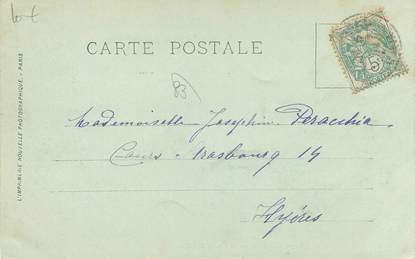 CARTE POSTALE
83
Mademoiselle Josephine Peracchia
Cours Strasbourg 14
Hyères
L'IMPRIMERIE NOUVELLE PHOTOGRAPHIQUE - PARIS
5